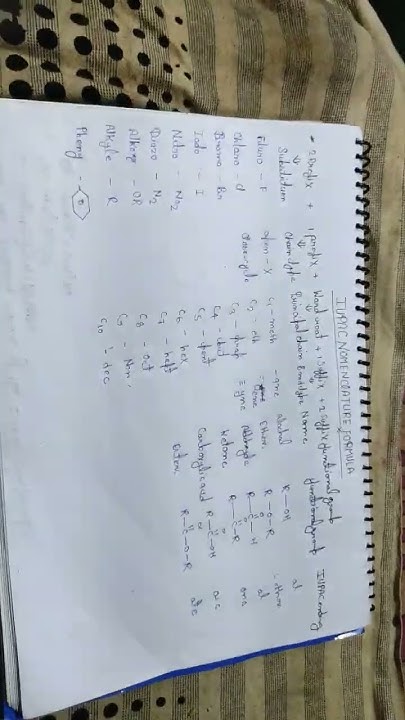 IUPAC NOMENCLATURE FORMULA
- 2 Prefix + 1 prefix + Word root + 1 Suffix + 2 Suffix functional group
Substitution Chain type Principal chain Bond type Name functional group IUPAC ending
Fluro - F open - X C1 - meth - ane alcohol R - OH ol
Chloro - Cl C2 - eth = ene Ether R - O - R
Bromo - Br C3 - prop ≡ yne Aldehyde R - C - H al
Iodo - I C4 - but Ketone R - C - R one
Nitro - NO2 C5 - pent Carboxylic acid R - C - OH oic
Diazo - N2 C6 - hex Ester R - C - O - R ate
Alkoxy - OR C7 - hept
Alkyle - R C8 - oct
Phenoxy - C9 - Non
C10 - dec